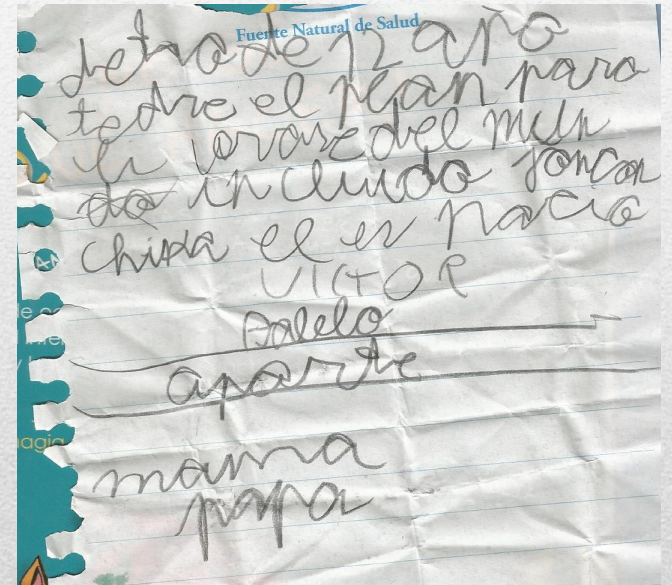 Fuente Natural de Salud
detra de 12 año
tedre el plan para
li vrarse del mun
do incluido joncon
chixa el es nacio
VICTOR
Dalelo
aparte
mama
papa
agia